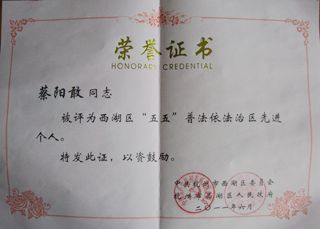 荣誉证书
HONORARY CREDENTIAL
蔡阳敢 同志
被评为西湖区“五五”普法依法治区先进
个人。
特发此证，以资鼓励。
中共杭州市西湖区委员会
杭州市西湖区人民政府
二〇一一年六月